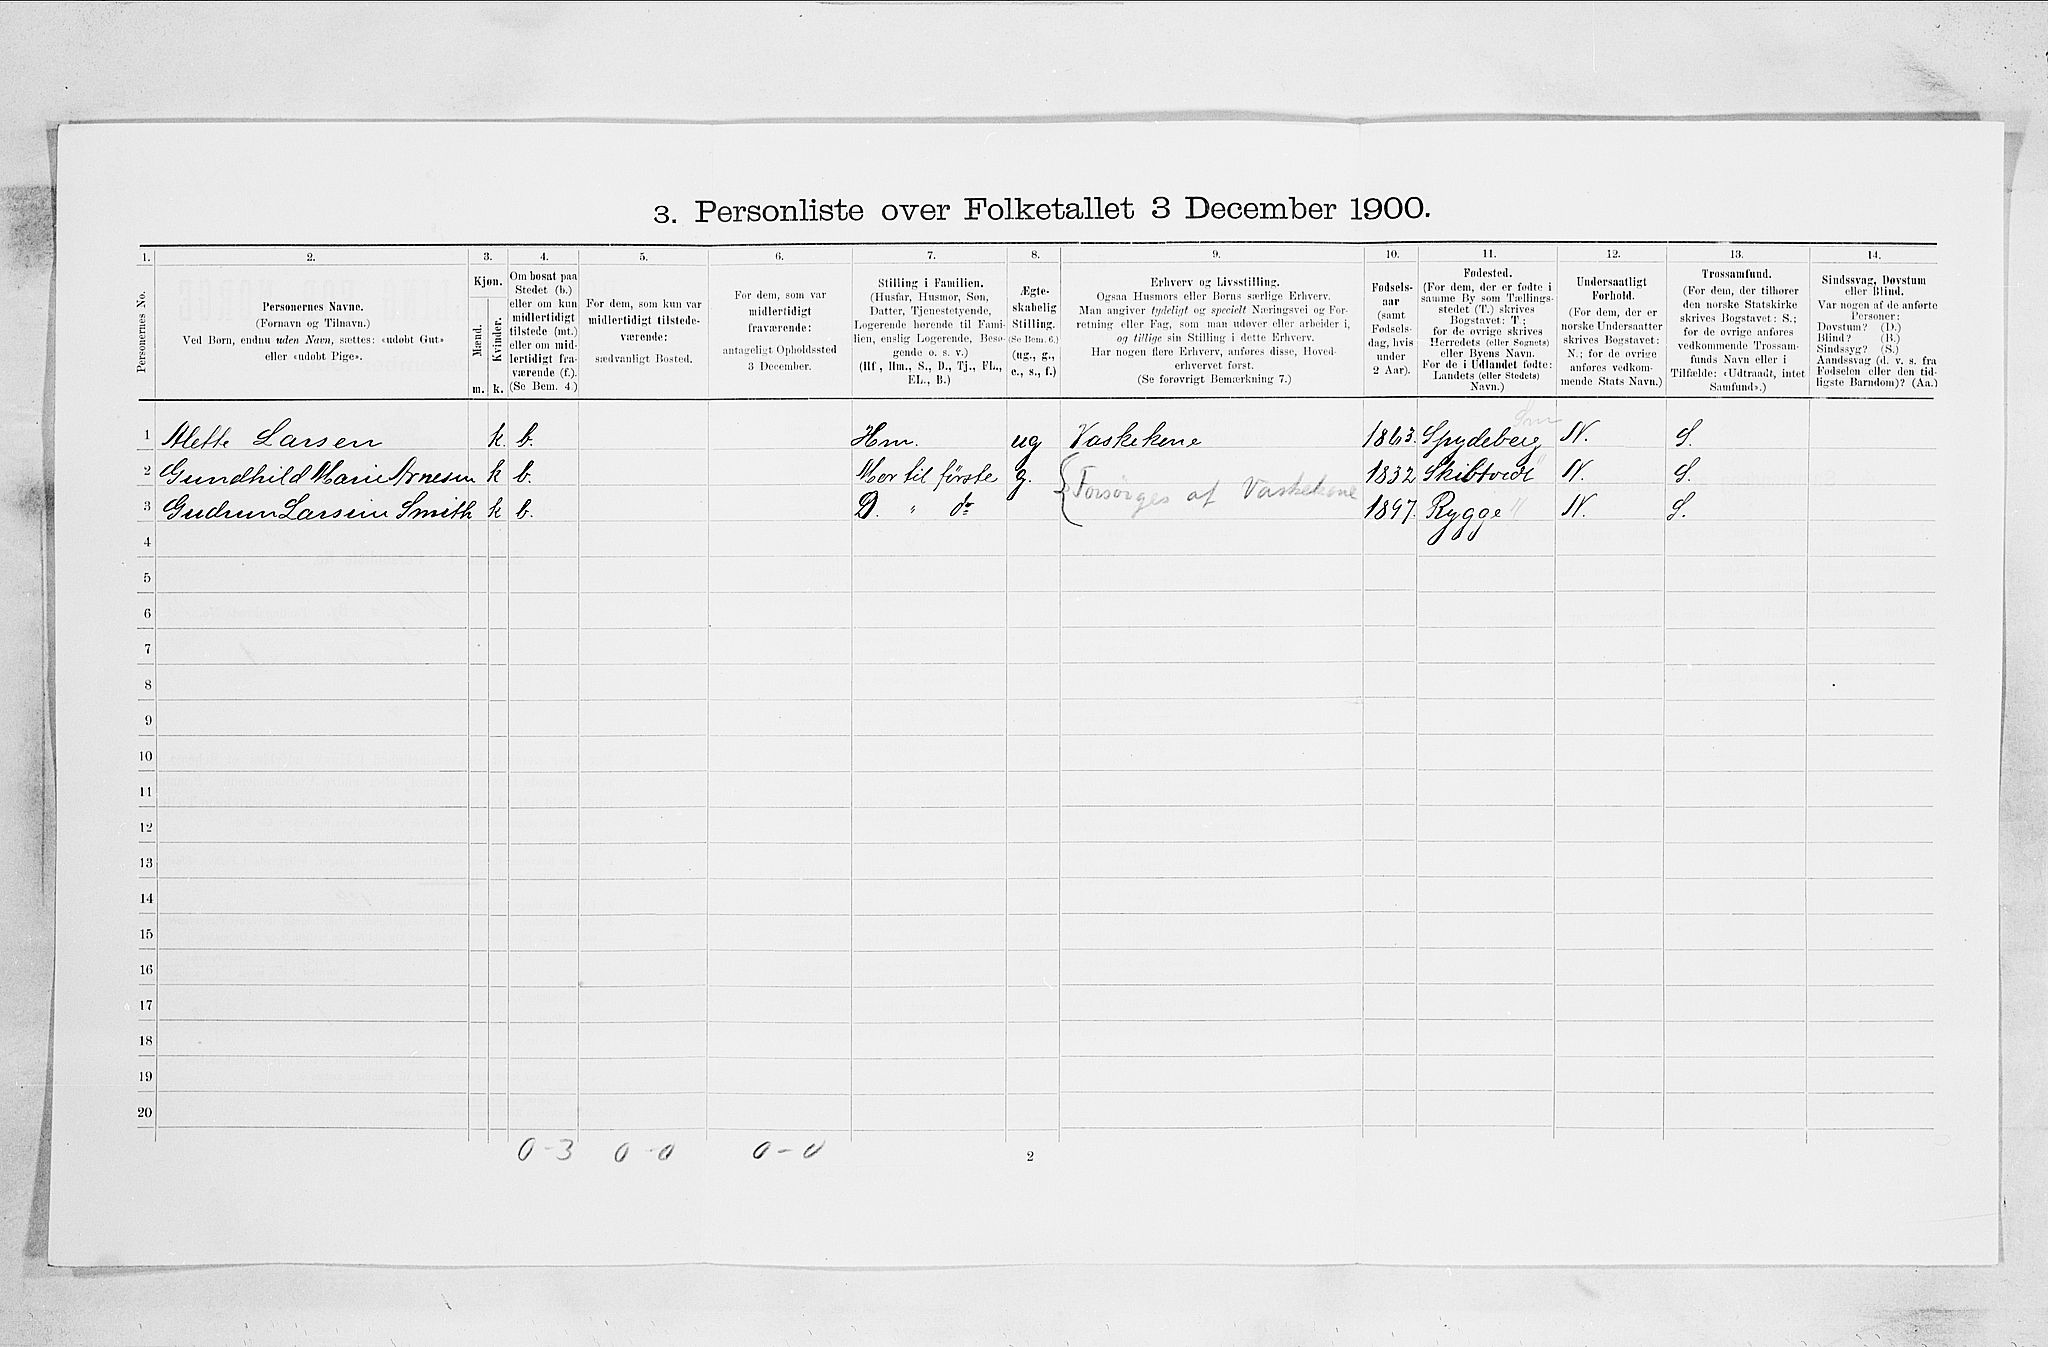 3. Personliste over Folketallet 3 December 1900.
1. 2. 3. 4. 5. 6. 7. 8. 9. 10. 11. 12. 13. 14.
Personernes No.
Personernes Navne.
(Fornavn og Tilnavn.)
Ved Børn, endnu uden Navn, sættes: «udøbt Gut»
eller «udøbt Pige».
Kjøn.
Mænd.
Kvinder.
m. k.
Om bosat paa
Stedet (b.)
eller om kun
midlertidigt
tilstede (mt.)
eller om mid-
lertidigt fra-
værende (f.).
(Se Bem. 4.)
For dem, som kun var
midlertidigt tilstede-
værende:
sædvanligt Bosted.
For dem, som var
midlertidigt
fraværende:
antageligt Opholdssted
3 December.
Stilling i Familien.
(Husfar, Husmor, Søn,
Datter, Tjenestetyende,
Logerende hørende til Fami-
lien, enslig Logerende, Besø-
gende o. s. v.)
(Hf., Hm., S., D., Tj., FL.,
EL., B.)
Ægte-
skabelig
Stilling.
(Se Bem. 6.)
(ug., g.,
e., s., f.)
Erhverv og Livsstilling.
Ogsaa Husmors eller Børns særlige Erhverv.
Man angiver tydeligt og specielt Næringsvei og For-
retning eller Fag, som man udøver eller arbeider i,
og tillige sin Stilling i dette Erhverv.
Har nogen flere Erhverv, anføres disse, Hoved-
erhvervet først.
(Se forøvrigt Bemærkning 7.)
Fødsels-
aar
(samt
Fødsels-
dag, hvis
under
2 Aar).
Fødested.
(For dem, der er fødte i
samme By som Tællings-
stedet (T.) skrives
Bogstavet: T.;
for de øvrige skrives
Herredets (eller Sognets)
eller Byens Navn.
For de i Udlandet fødte:
Landets (eller Stedets)
Navn.)
Undersaatligt
Forhold.
(For dem, der er
norske Undersaatter
skrives Bogstavet:
N.; for de øvrige
anføres vedkom-
mende Stats Navn.)
Trossamfund.
(For dem, der tilhører
den norske Statskirke
skrives Bogstavet: S.;
for de øvrige anføres
vedkommende Trossam-
funds Navn eller i
Tilfælde: «Udtraadt, intet
Samfund».)
Sindssvag, Døvstum
eller Blind.
Var nogen af de anførte
Personer:
Døvstum? (D.)
Blind? (B.)
Sindssyg? (S.)
Aandssvag (d. v. s. fra
Fødselen eller den tid-
ligste Barndom)? (Aa.)
1 Alette Larsen k. b. Hm. ug Vaskekone 1863. Spydeberg N. S.
2 Gundhild Marie Arnesen k b. Mor til første g. Forsørges af Vaskekone 1832 Skibtvedt N. S.
3 Gudrun Larsine Smith k b. D. " do 1897. Rygge " N. S.
4
5
6
7
8
9
10
11
12
13
14
15
16
17
18
19
20
0-3 0-0 0-0
2